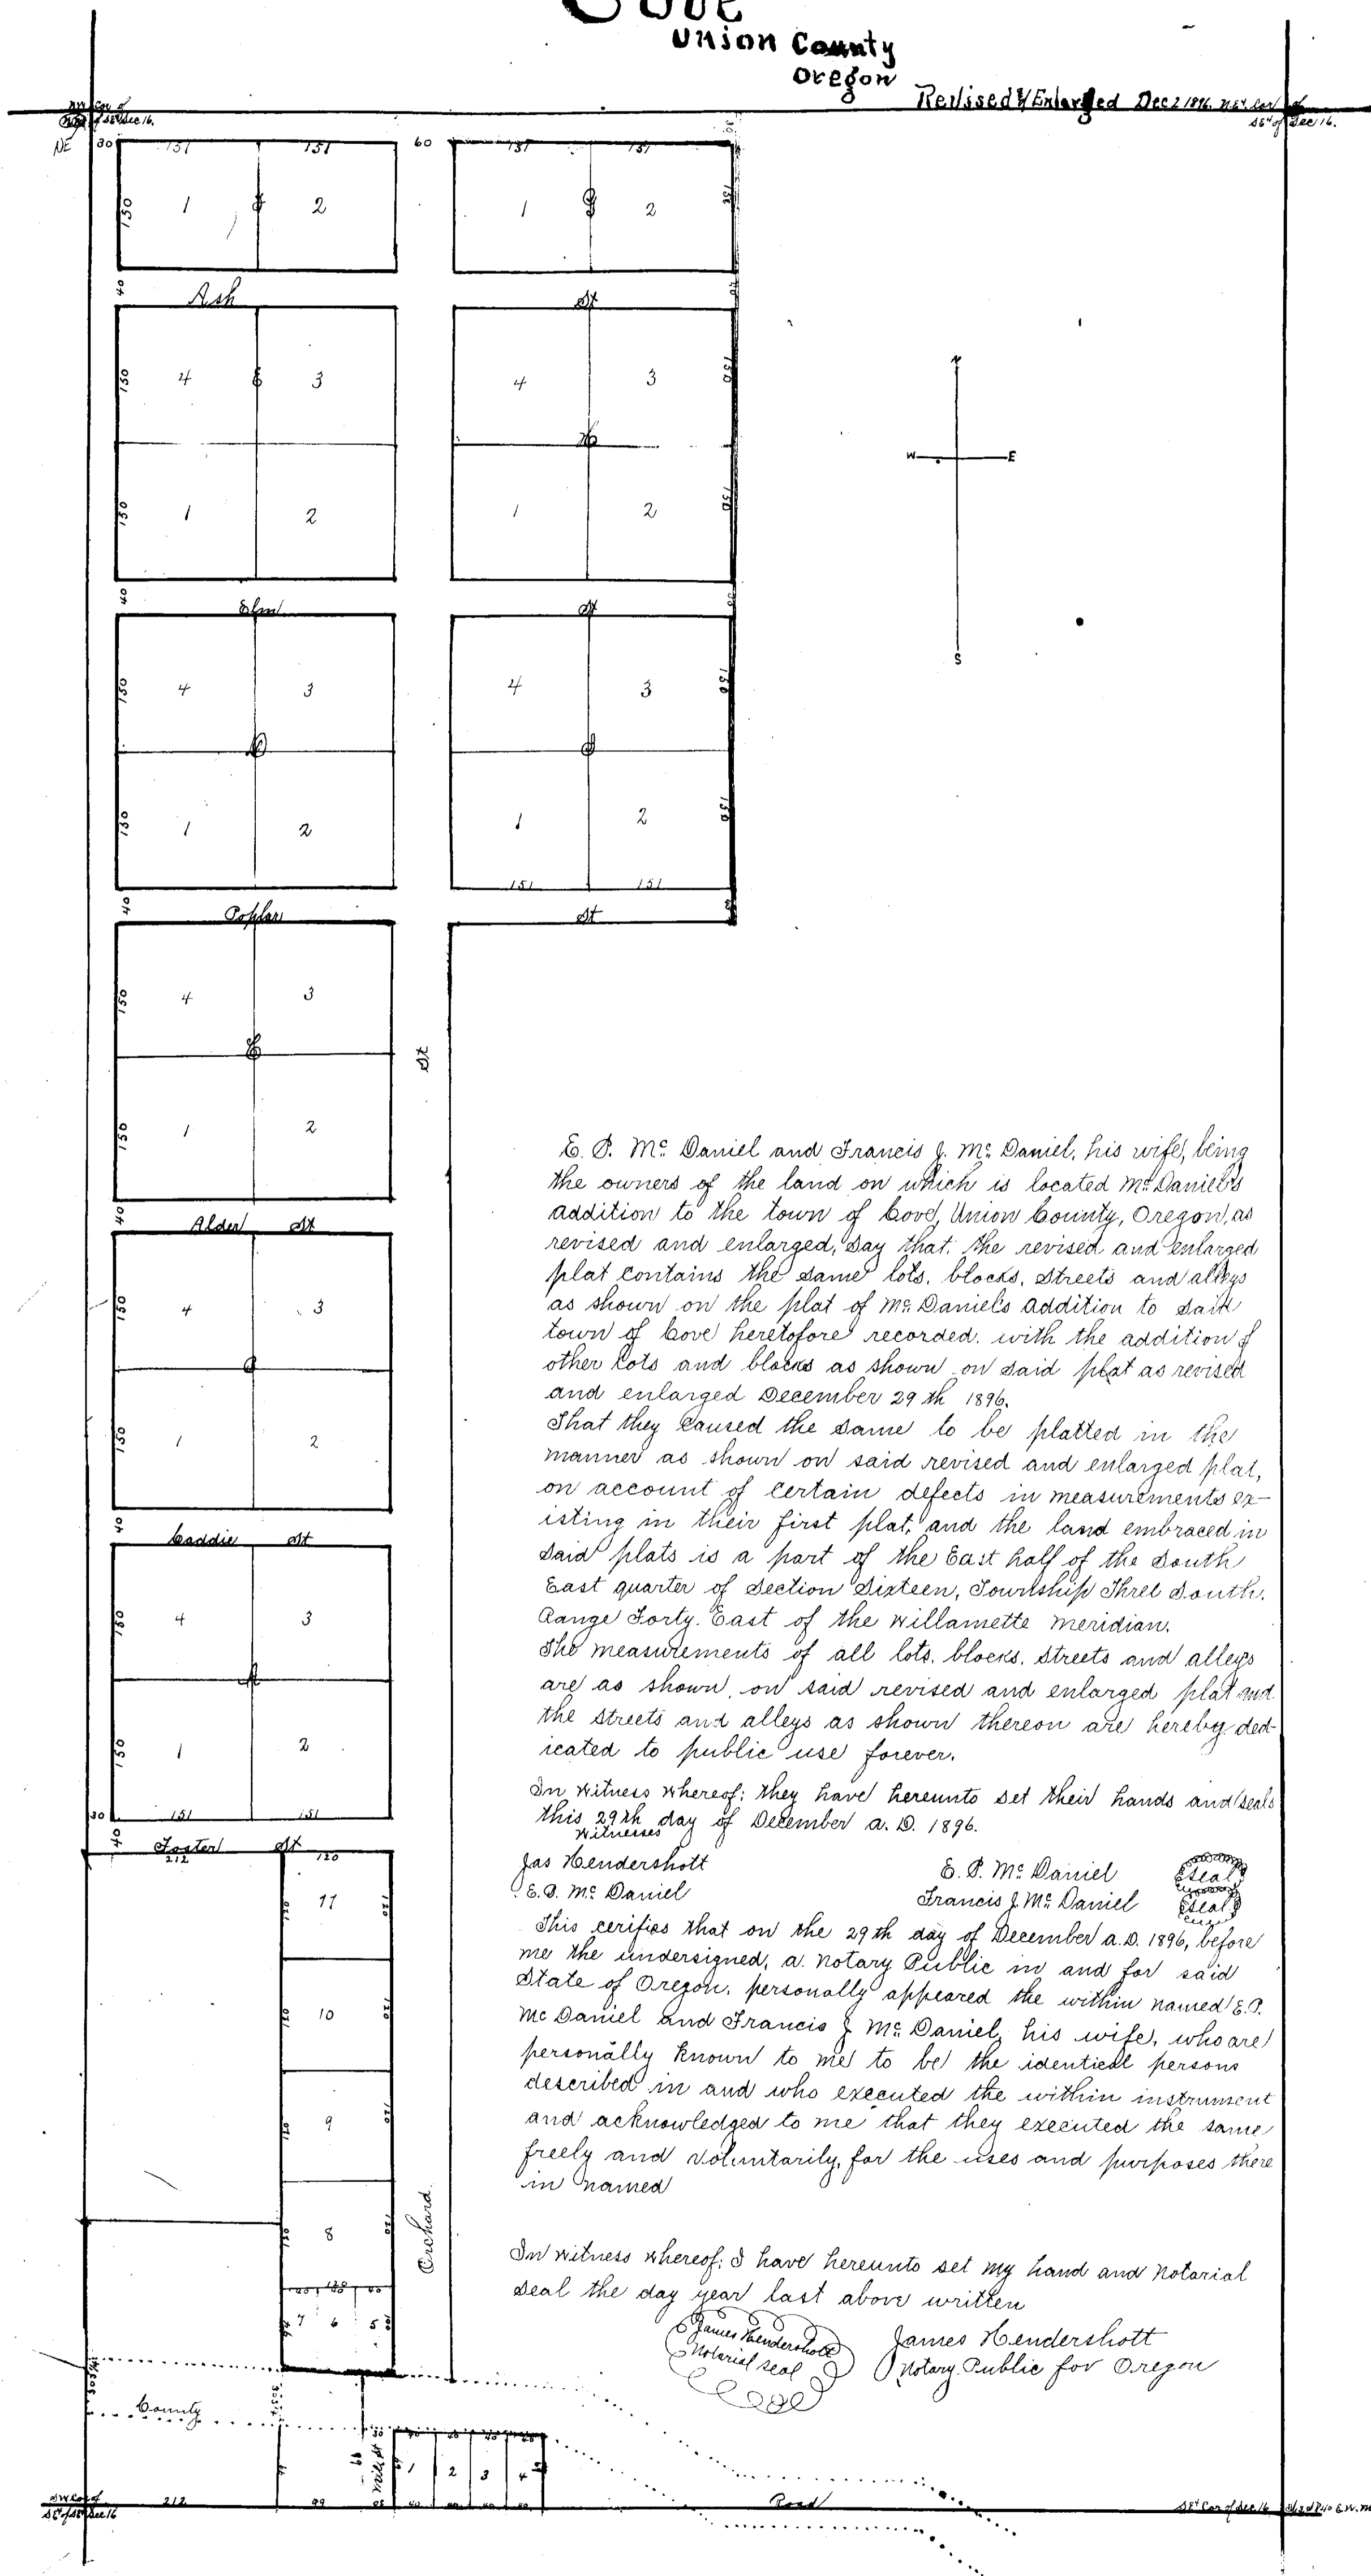 Cove
Union County
Oregon
Revised & Enlarged Dec 2 1896.
151 151 60 151 151
150 1 2 1 2
40 Ash St
150 4 3 4 3
150 1 2 1 2
40 Elm St
150 4 3 4 3
150 1 2 1 2
151 151
40 Poplar St
150 4 3
St
150 1 2
40 Alder St
150 4 3
150 1 2
40 Caddie St
150 4 3
150 1 2
30 151 151
40 Foster St
212 120
11
10
9
8
Orchard
7 6 5
County
1 2 3 4
212 99
Road
SE Cor of Sec 16
N
W E
S
E. P. Mc Daniel and Francis J. Mc Daniel, his wife, being
the owners of the land on which is located Mc Daniel's
addition to the town of Cove, Union County, Oregon, as
revised and enlarged, say that, the revised and enlarged
plat contains the same lots, blocks, streets and alleys
as shown on the plat of Mc Daniel's addition to said
town of Cove heretofore recorded, with the addition of
other lots and blocks as shown on said plat as revised
and enlarged December 29th 1896.
That they caused the same to be platted in the
manner as shown on said revised and enlarged plat,
on account of certain defects in measurements ex-
isting in their first plat, and the land embraced in
said plats is a part of the East half of the South
East quarter of Section Sixteen, Township Three South,
Range Forty East of the Willamette Meridian.
The measurements of all lots, blocks, streets and alleys
are as shown on said revised and enlarged plat and
the streets and alleys as shown thereon are hereby ded-
icated to public use forever.
In witness whereof; they have hereunto set their hands and seals
this 29th day of December a. D. 1896.
Witnesses
Jas Hendershott
E. P. Mc Daniel Seal
E. D. Mc Daniel
Francis J. Mc Daniel Seal
This cerifies that on the 29th day of December a. D. 1896, before
me the undersigned, a Notary Public in and for said
State of Oregon, personally appeared the within named E. P.
Mc Daniel and Francis J Mc Daniel, his wife, who are
personally known to me to be the identical persons
described in and who executed the within instrument
and acknowledged to me that they executed the same
freely and voluntarily, for the uses and purposes there
in named
In witness whereof; I have hereunto set my hand and Notarial
seal the day year last above written
James Hendershott
Notarial Seal
James Hendershott
Notary Public for Oregon
Seal